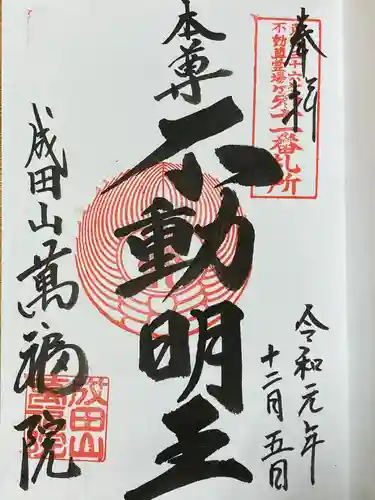 奉拝
不動尊霊場
番札所
本尊
不動明王
令和元年
十二月五日
成田山萬福院
成田山